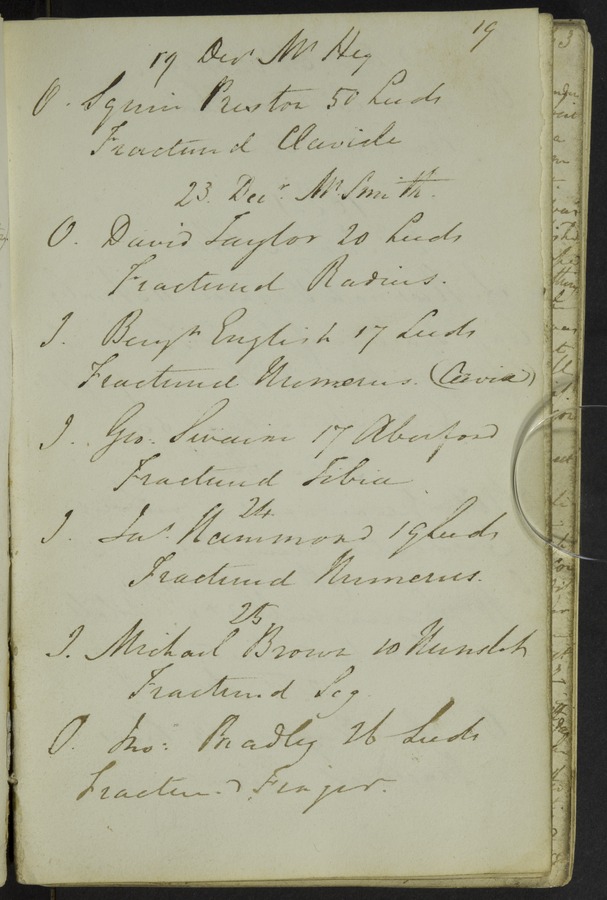 19
19 Decr Mr Hey
O. Squire Preston 50 Leeds
Fractured Clavicle
23. Decr. Mr. Smith.
O. David Taylor 20 Leeds
Fractured Radius.
I. Benjn English 17 Leeds
Fractured Humerus.
I. Geo. Swaine 17 Aberford
Fractured Tibia
24
I. Jas. Hammond 19 Leeds
Fractured Humerus.
25
I. Michael Brown 10 Hunslet
Fractured Leg
O. Jno: Bradley 26 Leeds
Fractured Finger.